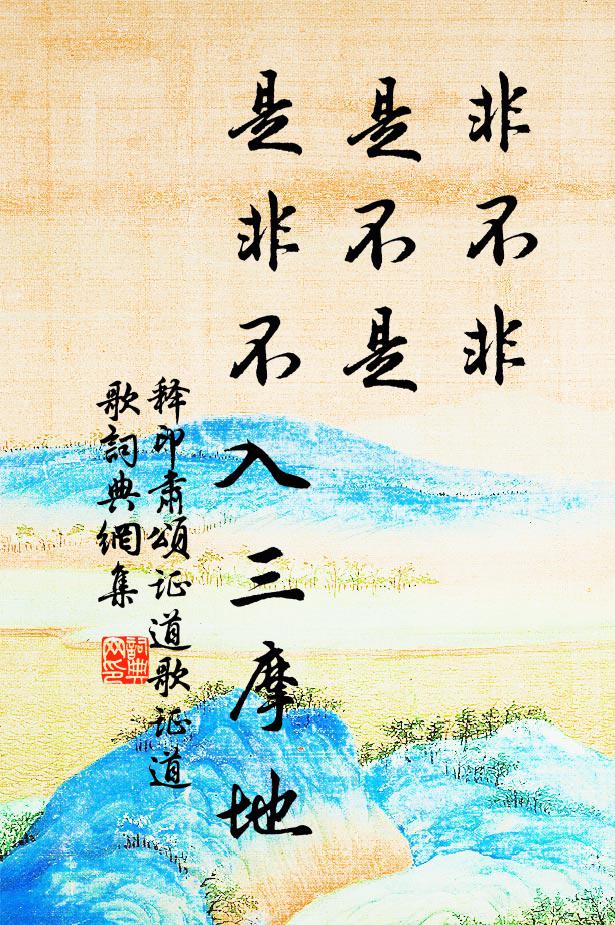 非不非
是不是
是非不入三摩地
释印肃頌证道歌证道
歌詞典網集
詞典